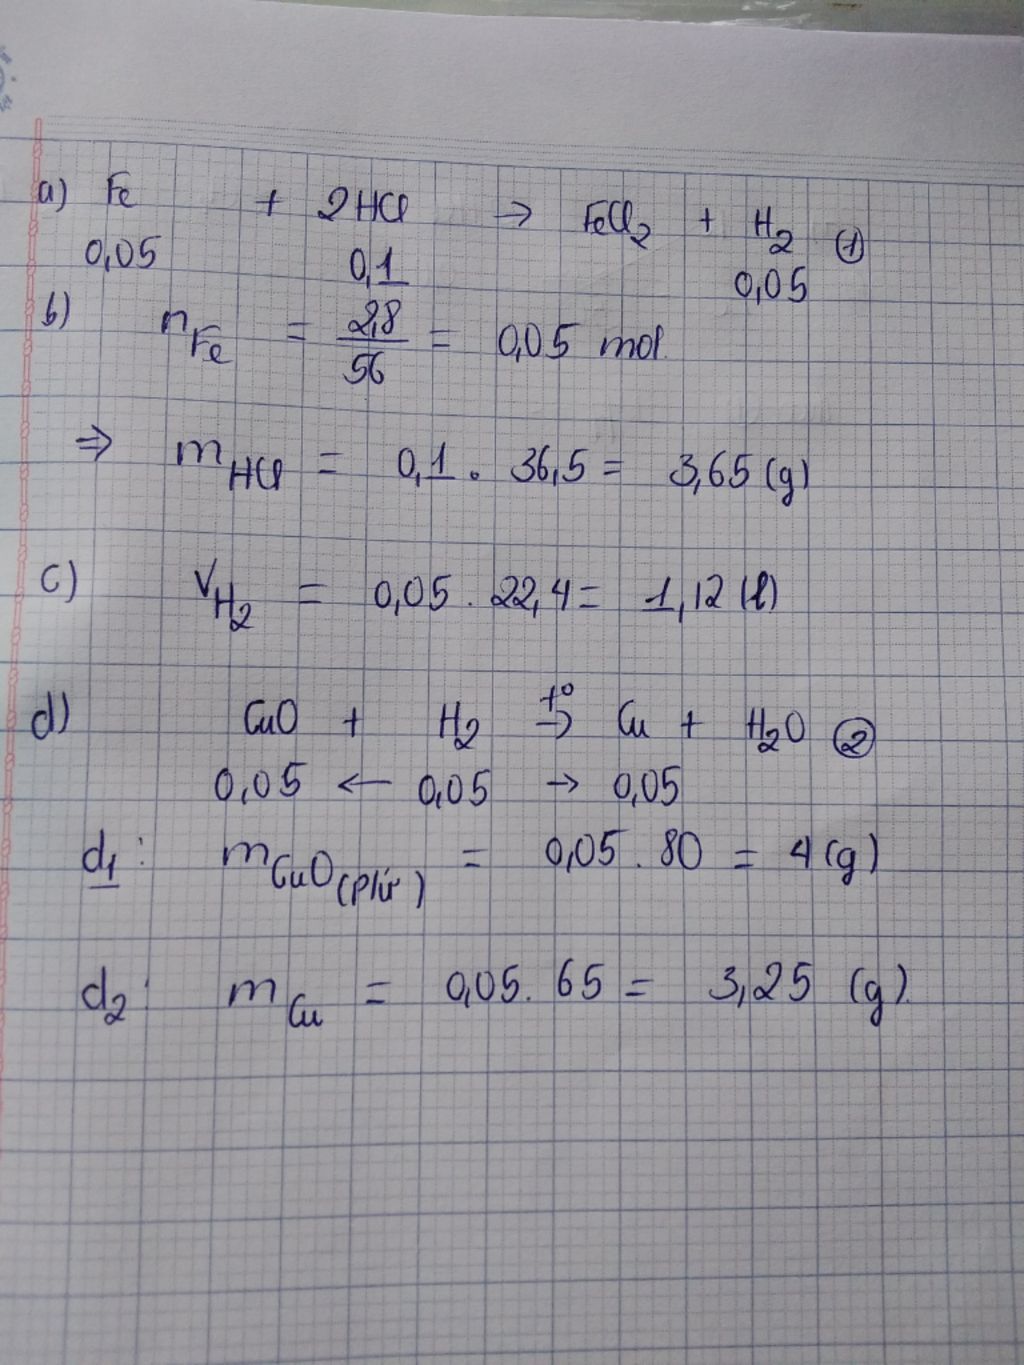 a) Fe + 2HCl → FeCl₂ + H₂ ①
0,05 0,1 0,05
b) n_Fe = 2,8/56 = 0,05 mol
⇒ m_HCl = 0,1 . 36,5 = 3,65 (g)
c) V_H₂ = 0,05 . 22,4 = 1,12 (l)
d) CuO + H₂ →^t° Cu + H₂O ②
0,05 ← 0,05 → 0,05
d₁: m_CuO (pứ) = 0,05 . 80 = 4 (g)
d₂: m_Cu = 0,05 . 65 = 3,25 (g).